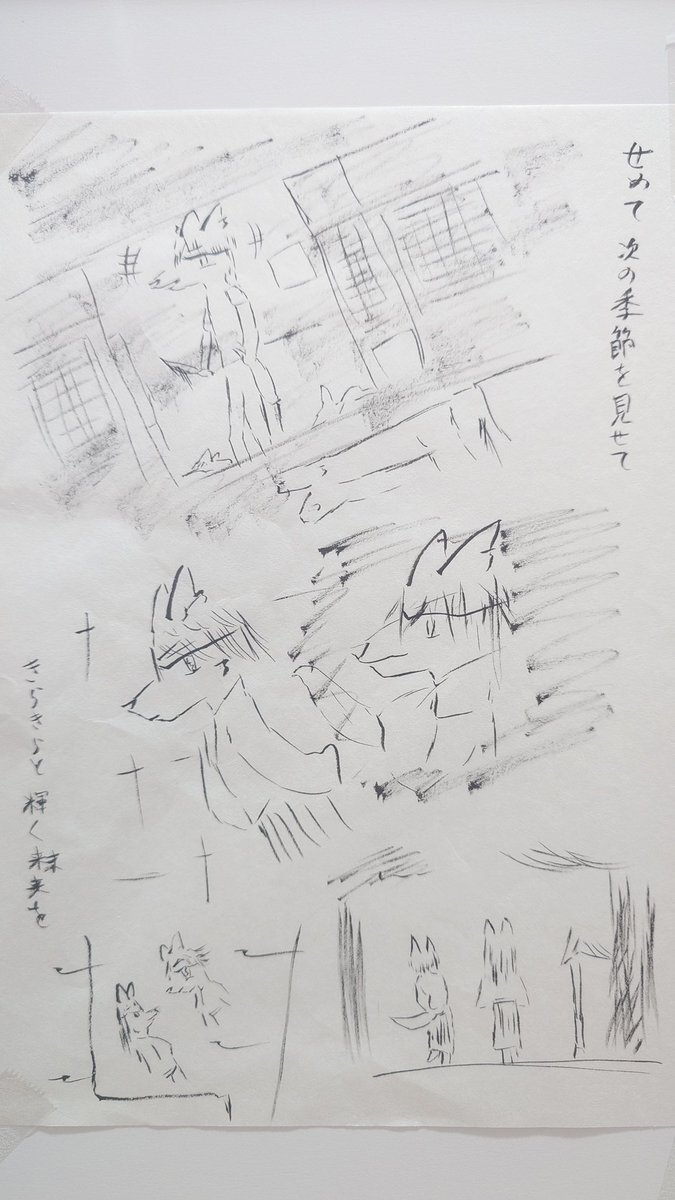 せめて 次の季節を見せて
きらきらと 輝く未来を